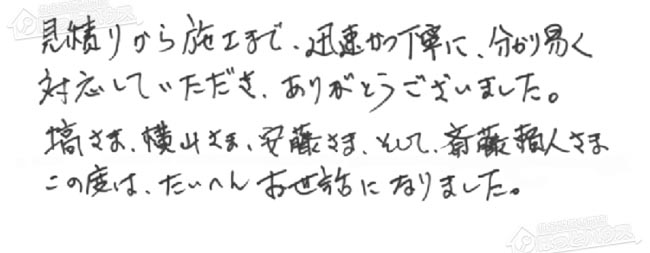 見積りから施工まで、迅速かつ丁寧に、分かり易く
対応していただき、ありがとうございました。
塙さま、横山さま、安藤さま、そして、斎藤頼人さま
この度は、たいへんお世話になりました。